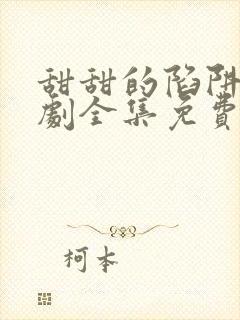 甜甜的陷阱
劇全集免費
柯本